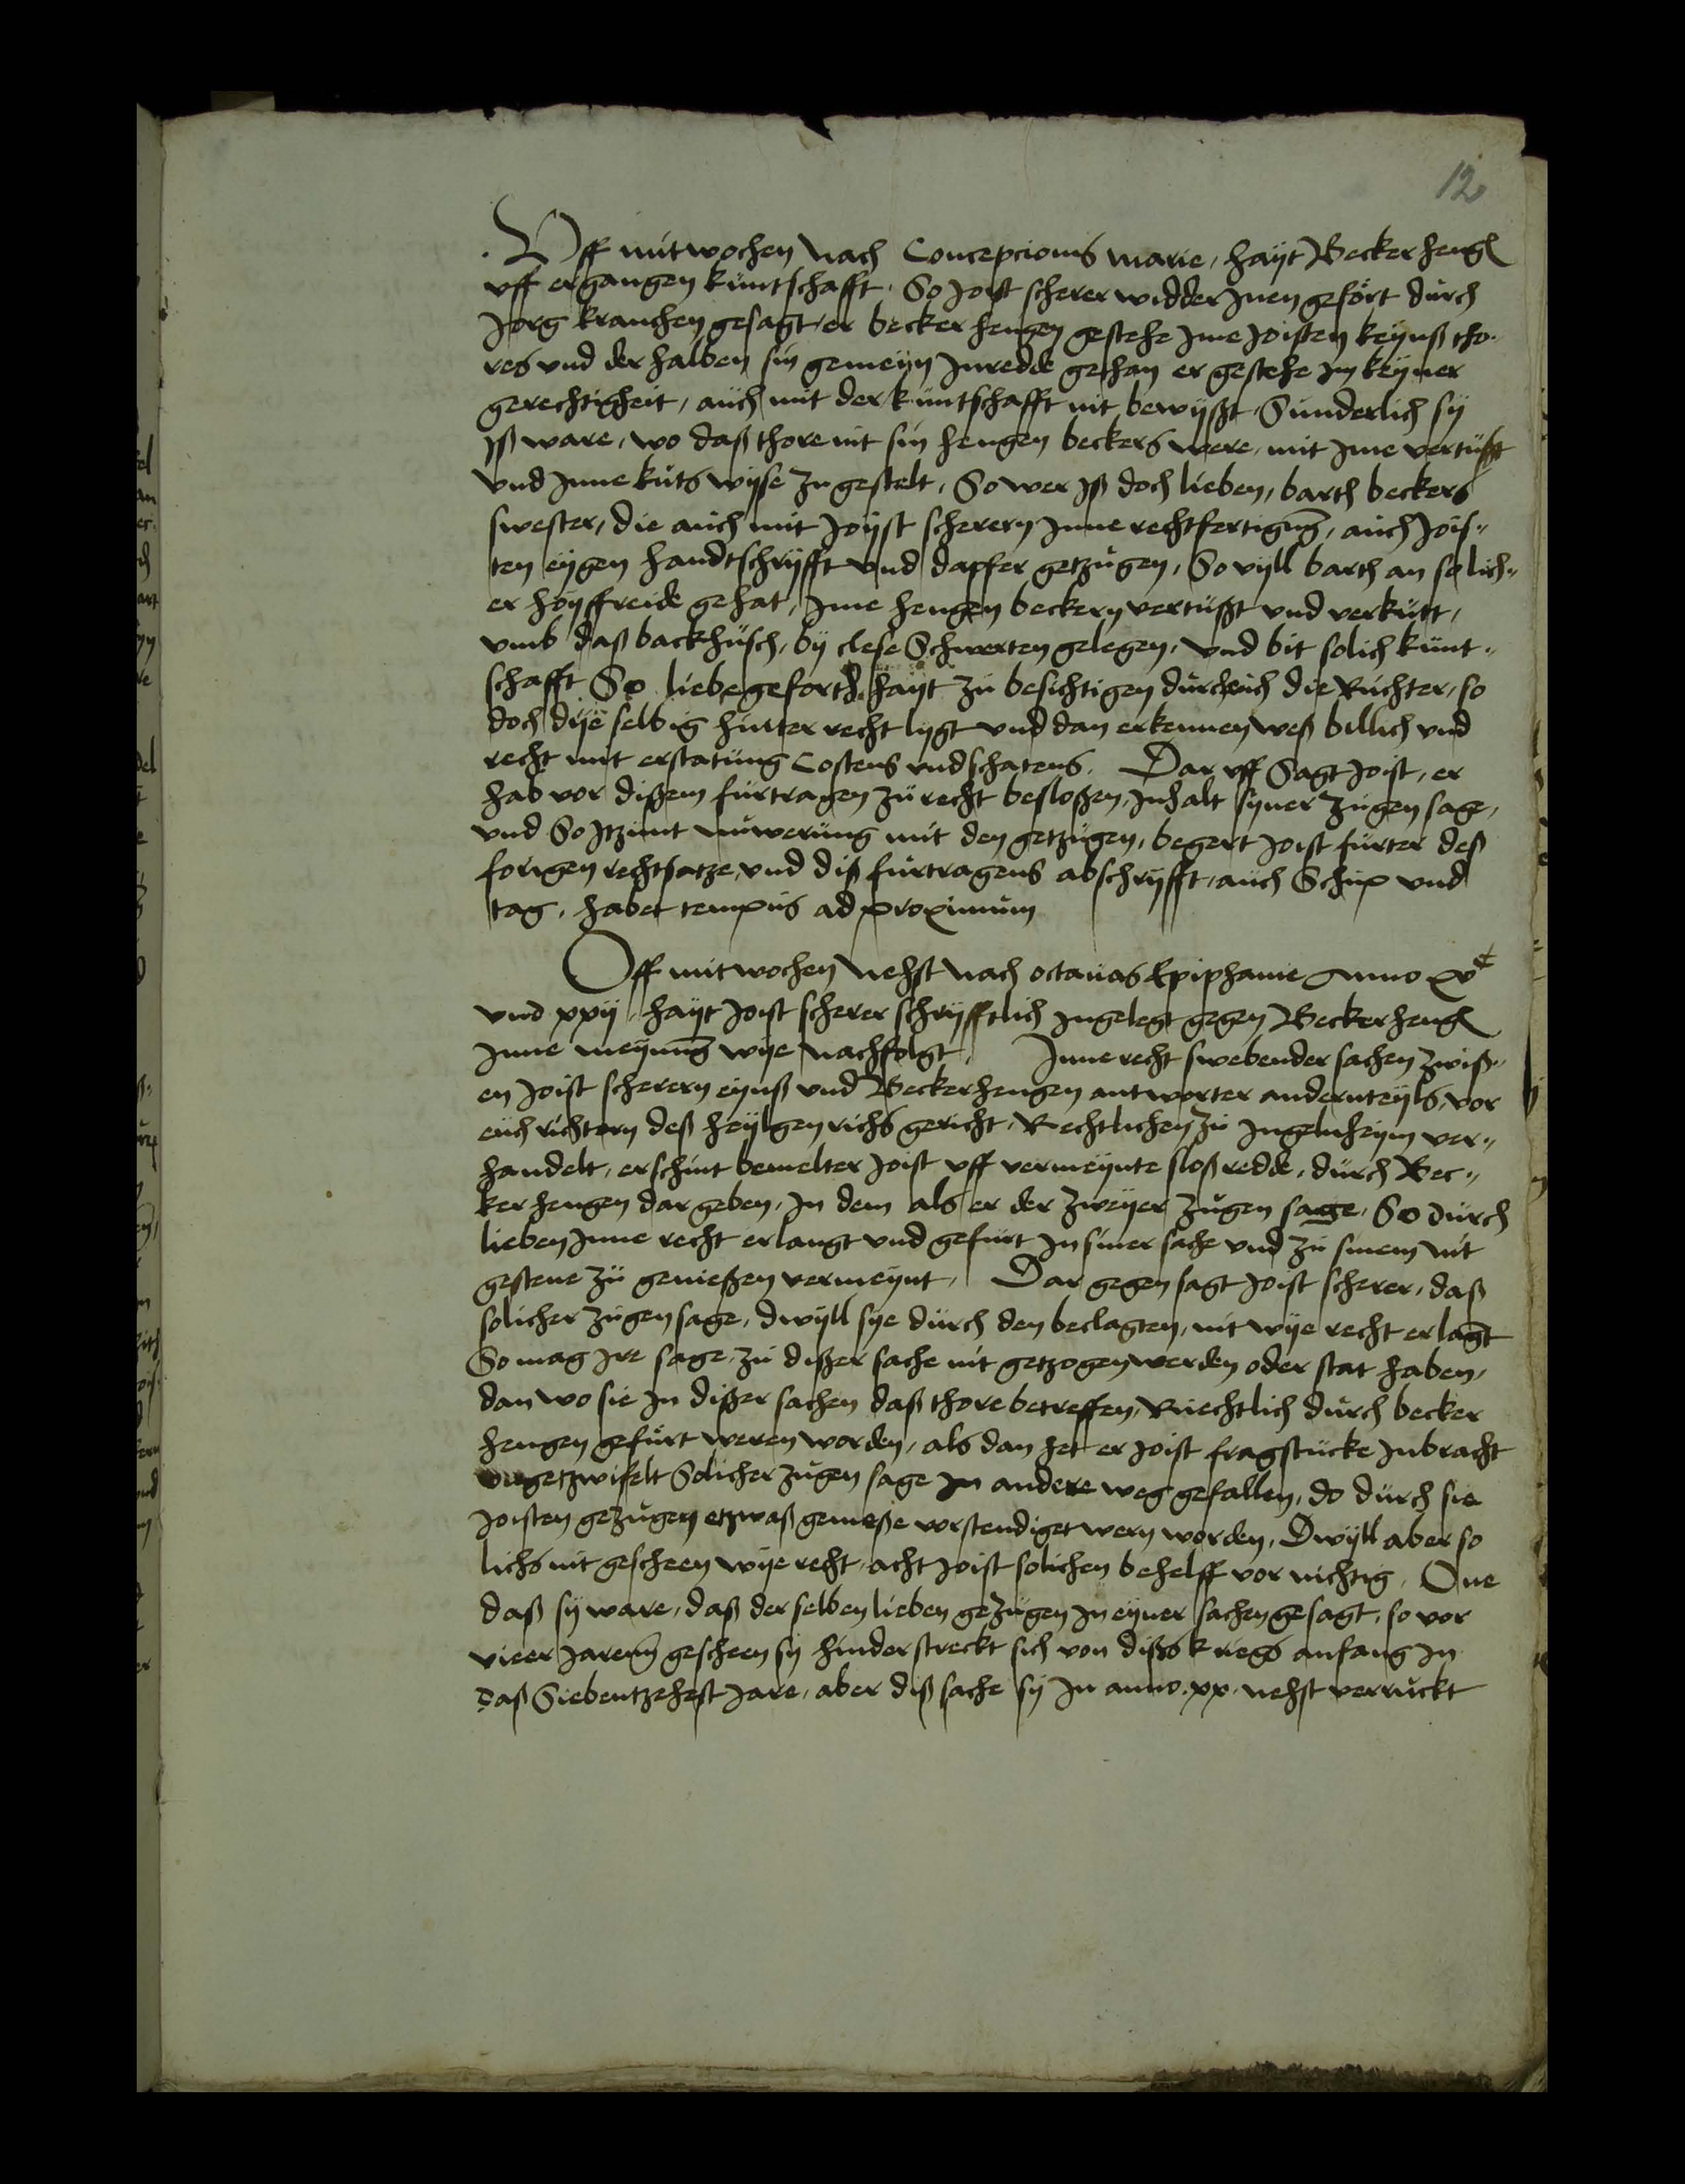 12
Uff mitwochen nach Concepcionis marie, hayt Becker heng
uff ergangen kuntschafft, So Joist scherer widder Inen gefort durch
Jorg kranchen gesagt, er becker hengen gestehe Ime Joisten keynß tho
res und der halben sin gemeyn Inredde gethan er gestehe Im keyner
gerechtigkeit, auch mit der kuntschafft nit bewyßt, Sunderlich sy
Iß ware, wo daß thore nit sin hengen beckers were, mit Ime vertußt
und Inne kuts wyse zu gestelt, So wer Iß doch lieben, barth beckers
swester, die auch mit Joyst scherern Inne rechtfertigung, auch Jois„
ten eygen handtschryfft und dapfer getzugen, So vyll barth an solich„
er hoyffreide gehat, Ime hengen beckern vertußt und verkutt,
umb daß backhusch, by clese Schwerten gelegen, und bit solich kunt„
schafft So liebe geforth hayt zu besichtigen durch euch die Richter, so
doch dye selbig hinter recht lygt und dan erkennen weß billich und
recht mit erstatung Costens und schatens. Dar uff Sagt Joist, er
hab vor dißem furtragen zu recht besloßen, Inhalt syner zugen sage,
und So Itzunt nuwerung mit den getzugen, begert Joist furter deß
forigen rechtsatze, und diß furtragens abschryfft, auch Schup und
tag, habet tempus ad proximum
Off mitwochen nehst nach octavas Epiphanie Anno xvc
und xxij, hayt Joist scherer schryfftlich Ingelegt gegen Becker heng
Inne meynung wye nachfolgt, Inne recht swebender sachen zwiß„
en Joist scherern eynß und Becker hengen antworter anderteyls, vor
euch richtern deß heylgen richs gericht, Rechtlichen zu Ingelnheym ver„
handelt, erschint bemelter Joist uff vermeynte sloßredde, durch Bec„
ker hengen dar geben, In dem als er der zweyer zugen sage, So durch
lieben Inne recht erlangt und gefurt In siner sache und zu sinem nit
gestene zu genießen vermeynt, Dar gegen sagt Joist scherer, daß
solicher zugen sage, dwyll sye durch den beclagten, nit wye recht erlagt
So mag Ire sage, zu dißer sache nit getzogen werden oder stat haben,
dan wo sie In dißer sachen daß thore betreffen, Riechtlich durch becker
hengen gefurt weren worden, als dan het er Joist fragstucke Inbracht
ungetzwifelt Solicher zugen sage In andere weg gefallen, do durch sie
Joisten gezugen etzwaß gemeße verstendiget wern worden, Dwyll aber so
lichs nit gescheen wye recht, acht Joist solichen behelff vor nichtig, One
daß sy ware, daß der selben lieben gezugen In eyner sachen gesagt, so vor
vieer Jarenn gescheen sy hinder streckt sich von dißs kriegs anfang In
daß Siebentzehest Jare, aber diß sache sy In anno. xx. nehst verruckt